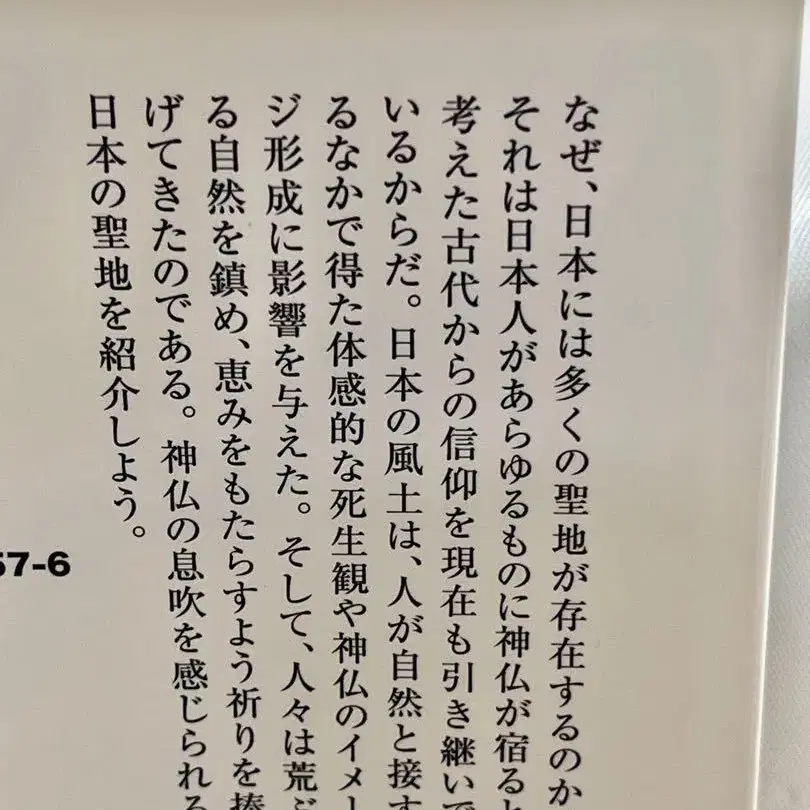 なぜ、日本には多くの聖地が存在するのか
それは日本人があらゆるものに神仏が宿ると
考えた古代からの信仰を現在も引き継いで
いるからだ。日本の風土は、人が自然と接す
るなかで得た体感的な死生観や神仏のイメー
ジ形成に影響を与えた。そして、人々は荒ぶ
る自然を鎮め、恵みをもたらすよう祈りを捧
げてきたのである。神仏の息吹を感じられる
日本の聖地を紹介しよう。
57-6